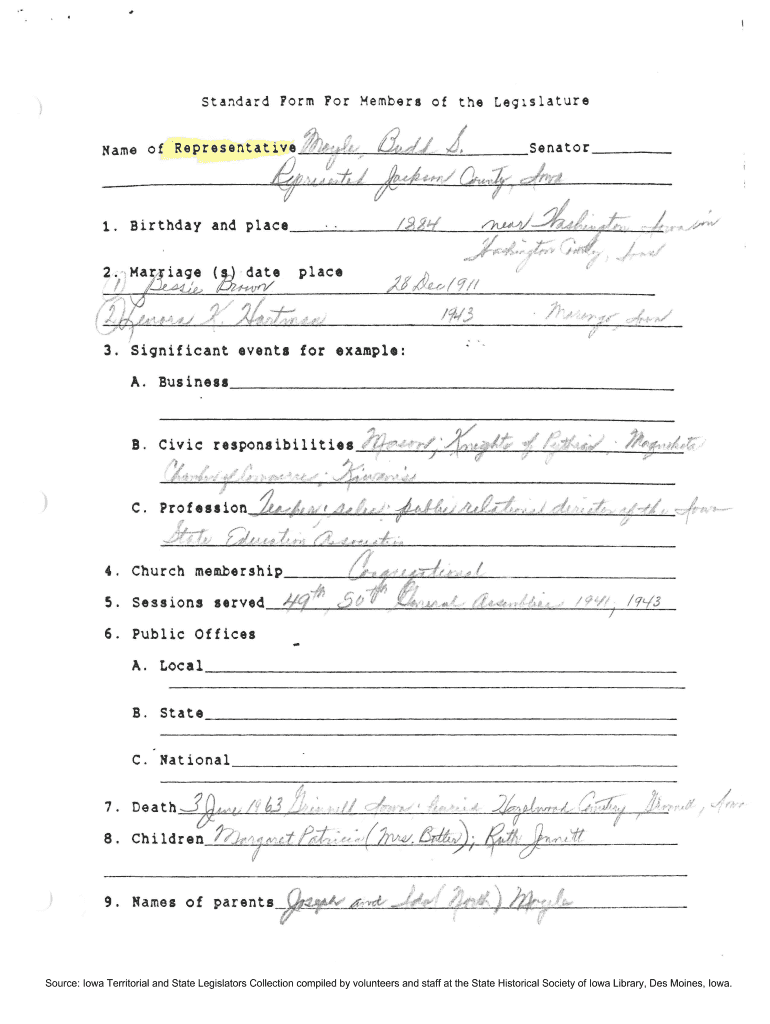 Standard Form For Members of the Legislature
Name of Representative Moyle, Budd S. Senator
Represented Jackson County, Iowa
1. Birthday and place 1884 near Washington
Washington County, Iowa
2. Marriage (s) date place
(1) Bessie Brown 28 Dec 1911
(2) Lenora K. Hartman 1943 Marengo, Iowa
3. Significant events for example:
A. Business
B. Civic responsibilities Mason; Knights of Pythias; Maquoketa
Chamber of Commerce; Kiwanis
C. Profession Teacher; sales; public relations director of the Iowa
State Education Association
4. Church membership Congregational
5. Sessions served 49th, 50th General Assemblies 1941, 1943
6. Public Offices
A. Local
B. State
C. National
7. Death 3 June 1963 Grinnell Iowa; buried Hazelwood Cemetery, Grinnell, Iowa
8. Children Margaret Patricia (Mrs. ); Ruth
9. Names of parents Joseph and Ida (North) Moyle
Source: Iowa Territorial and State Legislators Collection compiled by volunteers and staff at the State Historical Society of Iowa Library, Des Moines, Iowa.